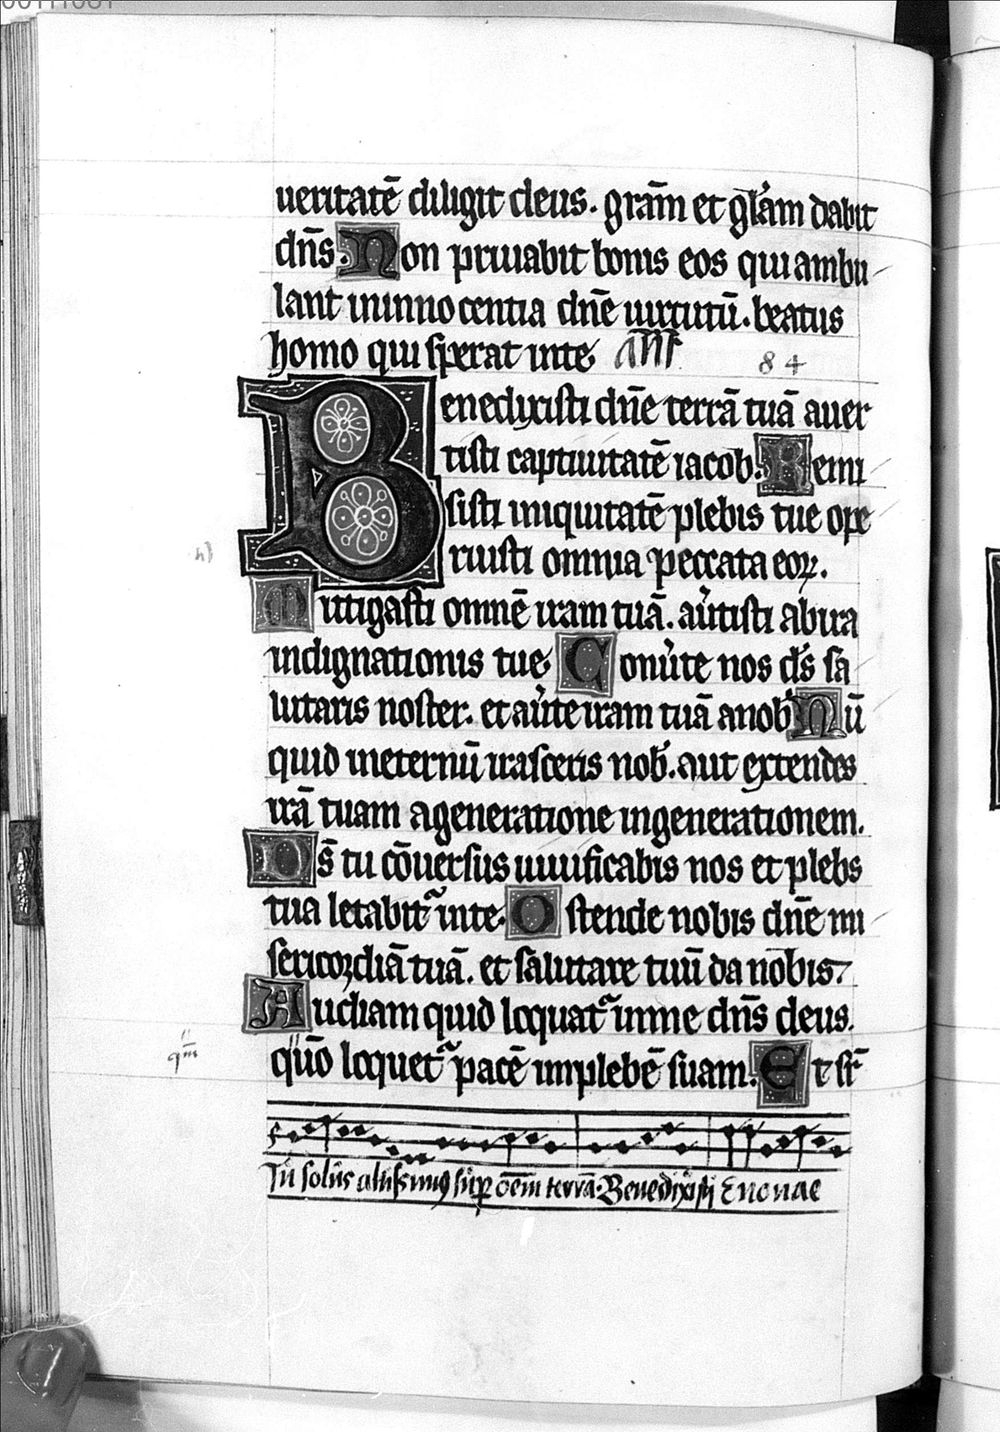 ueritatē diligit deus. grām et gl̄am dabit
dn̄s. Non priuabit bonis eos qui ambu
lant in innocentia dn̄e uirtutū. beatus
homo qui sperat in te
84
Benedixisti dn̄e terrā tuā auer
tisti captiuitatē iacob. Remi
sisti iniquitatē plebis tue ope
ruisti omnia peccata eoꝝ.
Mitigasti omnē iram tuā. au̓tisti ab ira
indignationis tue. Conu̓te nos d̄s sa
lutaris noster. et au̓te iram tuā a nob̓ Nū
quid in eternū irasceris nob̓. aut extendes
irā tuam a generatione in generationem.
Ds̄ tu cōuersus uiuificabis nos et plebs
tua letabit᷑ in te. Ostende nobis dn̄e mi
sericordiā tuā. et salutare tuū da nobis.
Audiam quid loquat᷑ in me dn̄s deus.
qm̄o loquet᷑ pacē in plebē suam. Et sr̄
qm̄
Tu solus altissimus sup̄ oēm terrā. Benedixisti Euouae